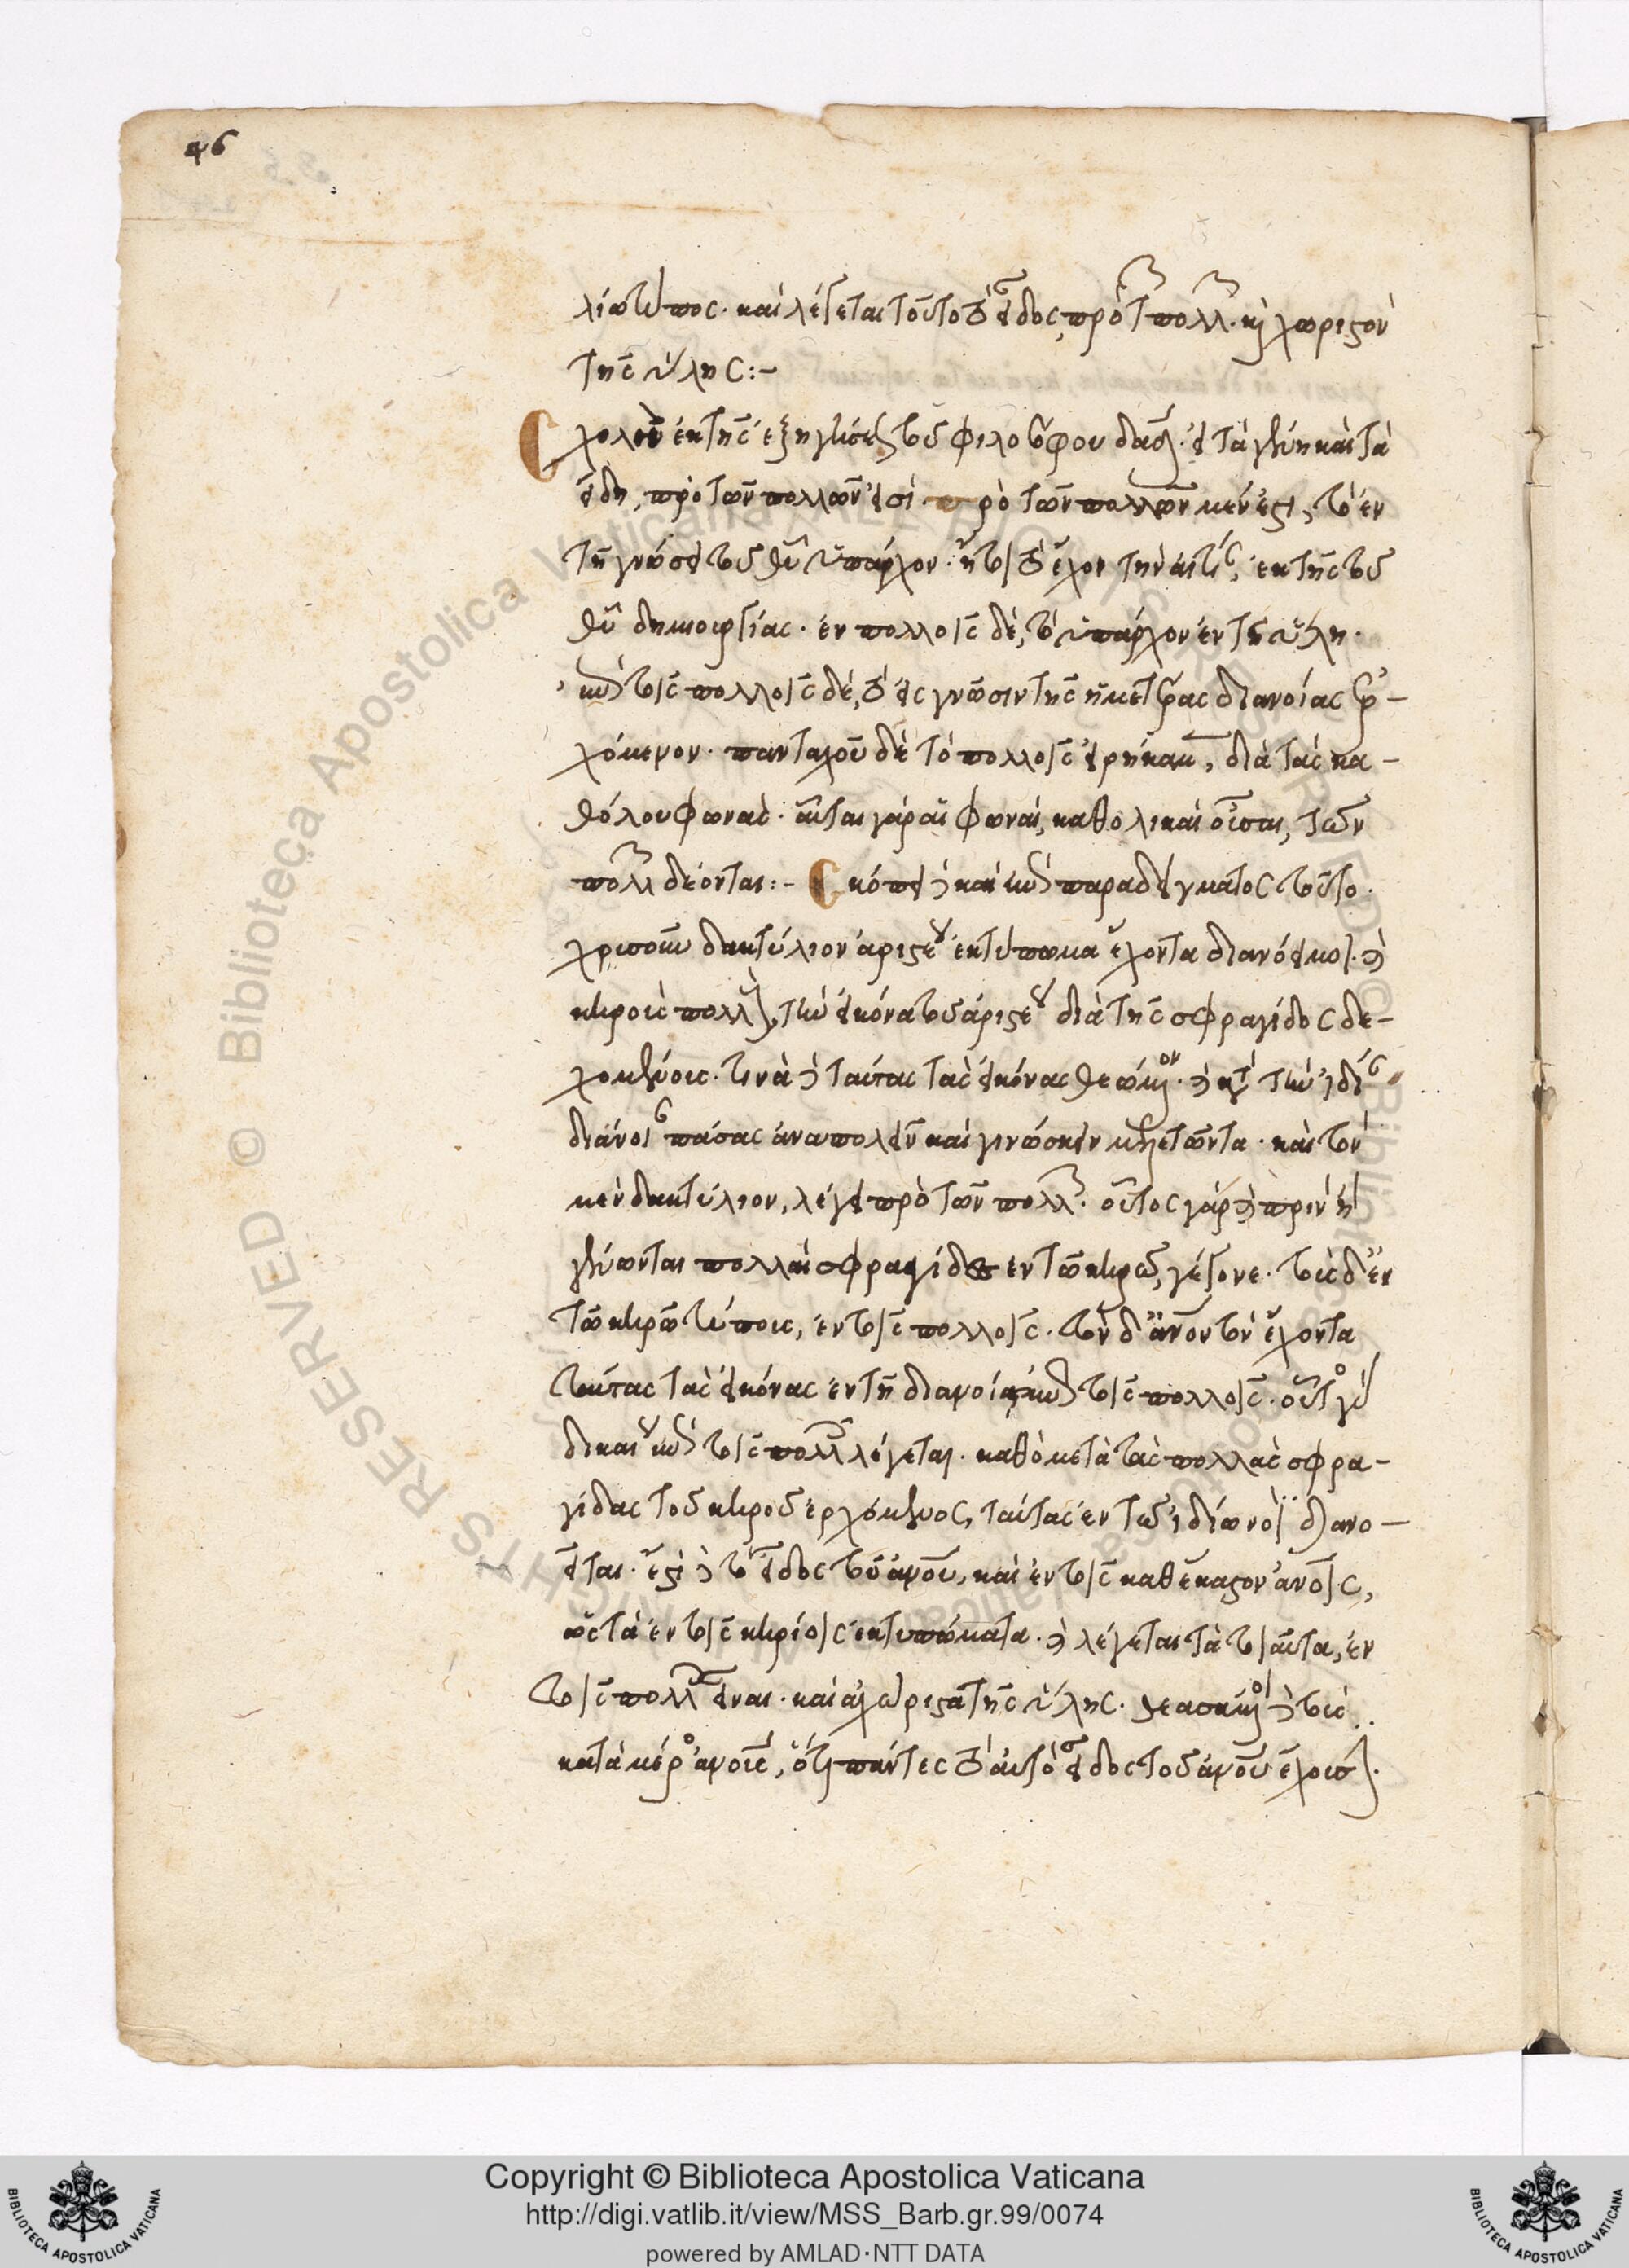 46
λίω τύπος· καὶ λέγεται τοῦτο τὸ εἶδος, πρὸ τῶν πολλῶν· καὶ χωριστὸν
τῆς ὕλης:-
Σχόλιον ἐκ τῆς ἐξηγήσεως τοῦ φιλοσόφου δαδ· εἰ τὰ γένη καὶ τὰ
εἴδη, πρὸ τῶν πολλῶν εἰσί· πρὸ τῶν πολλῶν μέν ἐστι, τὸ ἐν
τῇ γνώσει τοῦ θυ ὑπάρχον· ἤτοι τὸ ἔχον τὴν αἰτίαν, ἐκ τῆς τοῦ
θυ δημιουργίας· ἐν πολλοῖς δὲ, τὸ ὑπάρχον ἐν τῇ ὕλῃ·
ἐπὶ τοῖς πολλοῖς δὲ, τὸ εἰς γνῶσιν τῆς ἡμετέρας διανοίας ἐρ-
χόμενον· πανταχοῦ δὲ τὸ πολλοῖς εἰρήκαμεν, διὰ τὰς κα-
θόλου φωνάς· αὗται γάρ αἱ φωναὶ, καθολικαὶ οὖσαι, τῶν
πολλῶν δέονται:- Σκόπει καὶ ἐπὶ παραδείγματος τοῦτο·
χρυσοῦν δακτύλιον ἀρίστου ἐκτύπωμα ἔχοντα διανόει μοι· καὶ
κηροὺς πολλοὺς, τὴν εἰκόνα τοῦ ἀρίστου διὰ τῆς σφραγίδος δε-
χομένους· τινὰ καὶ ταύτας τὰς εἰκόνας θεώμενον· καὶ κατὰ τὴν ἰδίαν
διάνοιαν πάσας ἀναπολεῖν καὶ γινώσκειν μελετῶντα· καὶ τὸν
μὲν δακτύλιον, λέγει πρὸ τῶν πολλῶν· οὗτος γὰρ καὶ πρὶν ἢ
γένωνται πολλαὶ σφραγίδες ἐν τῷ κηρῷ, γέγονε· τοὺς δ' ἐν
τῷ κηρῷ τύπους, ἐν τοῖς πολλοῖς· τὸν δ' ἄνον τὸν ἔχοντα
ταύτας τὰς εἰκόνας ἐν τῇ διανοίᾳ, ἐπὶ τοῖς πολλοῖς· οὗτος γὰρ
δικαίως ἐπὶ τοῖς πολλοῖς λέγεται· καθὸ μετὰ τὰς πολλὰς σφρα-
γίδας τοῦ κηροῦ ἐρχόμενος, ταύτας ἐν τῷ ἰδίῳ νοῒ διανο-
εῖται· ἔστι καὶ τὸ εἶδος τοῦ ἀνου, καὶ ἐν τοῖς καθέκαστον ἀνοις,
ὡς τὰ ἐν τοῖς κηρίοις ἐκτυπώματα· καὶ λέγεται τὰ τοιαῦτα, ἐν
τοῖς πολλοῖς εἶναι· καὶ ἀχώριστα τῆς ὕλης· θεασάμενοι καὶ τοὺς
κατὰ μέρος ἀνους, ὅτι πάντες τὸ αὐτὸ εἶδος τοῦ ἀνου ἔχουσι·
Copyright © Biblioteca Apostolica Vaticana
http://digi.vatlib.it/view/MSS_Barb.gr.99/0074
powered by AMLAD·NTT DATA